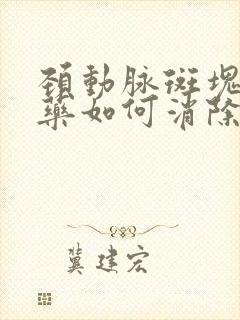 頚動脉斑塊
藥如何消除
冀建宏